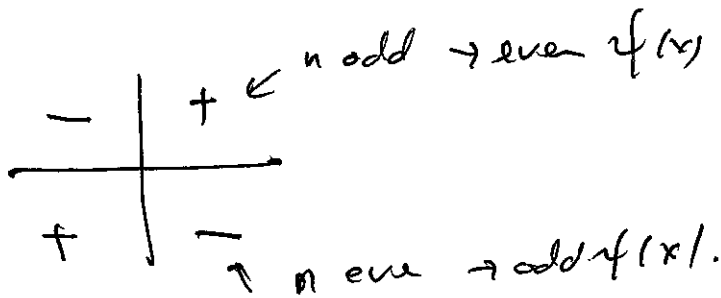 n odd → even ψ(x)
- +
+ -
n eve → odd ψ(x).